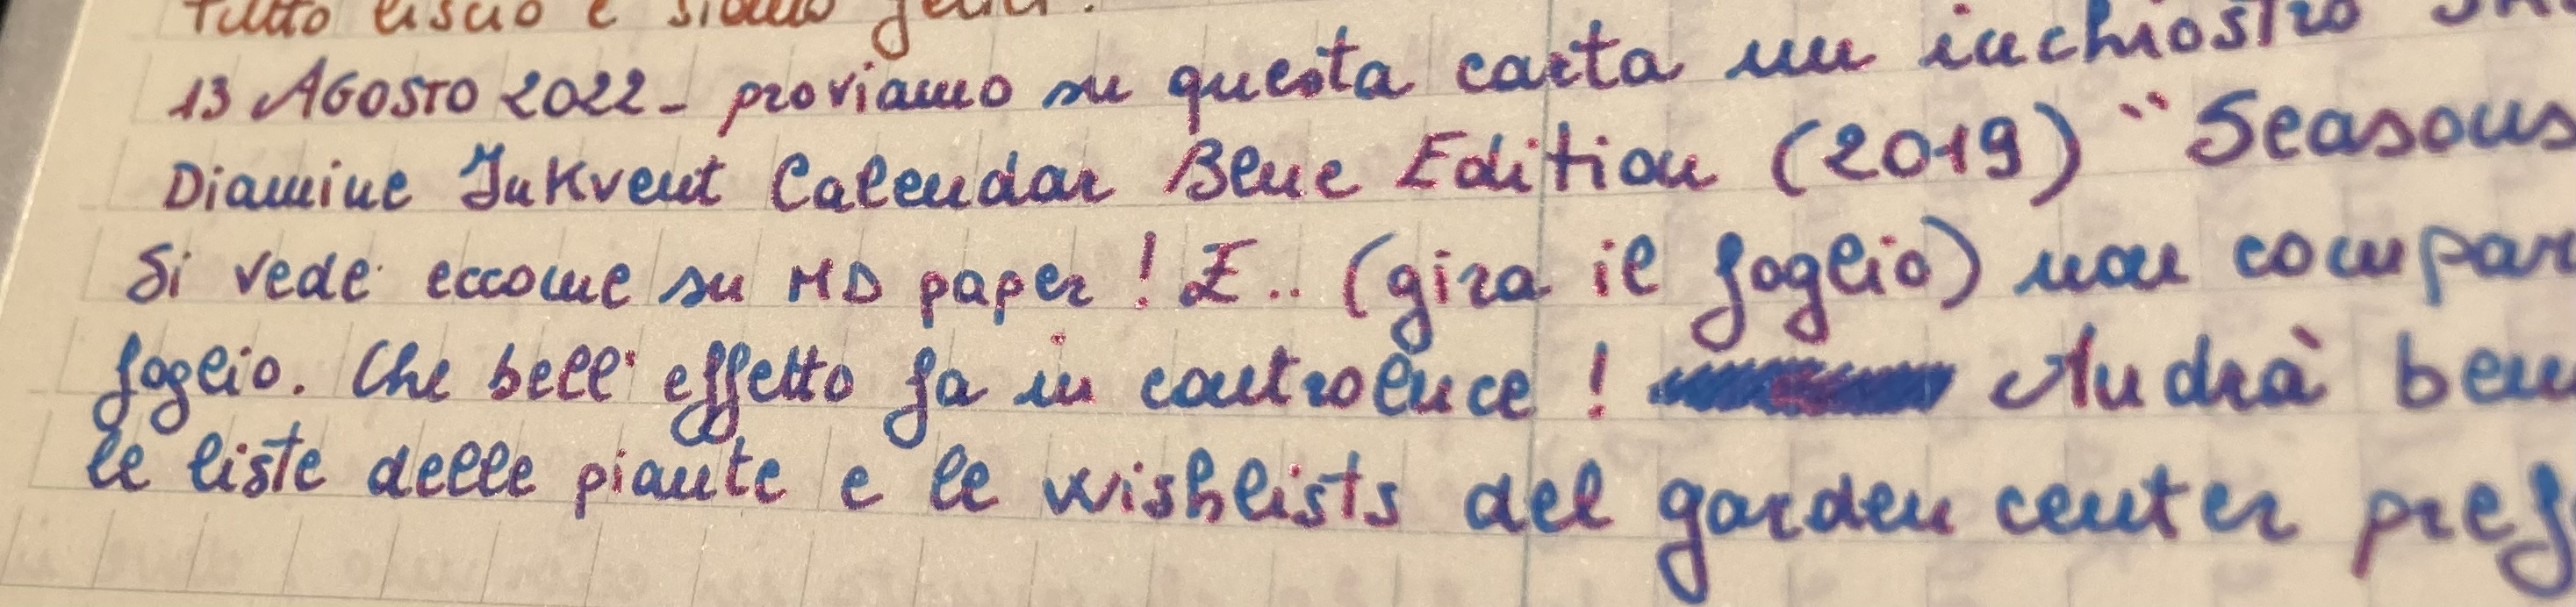 tutto liscio e siamo felici.
13 AGOSTO 2022 - proviamo su questa carta un inchiostro
Diamine InkVent Calendar Blue Edition (2019) "Seasons
Si vede eccome su MD paper! E.. (gira il foglio) non compar
foglio. Che bell' effetto fa in controluce! Andrà ben
le liste delle piante e le wishlists del garden center pref